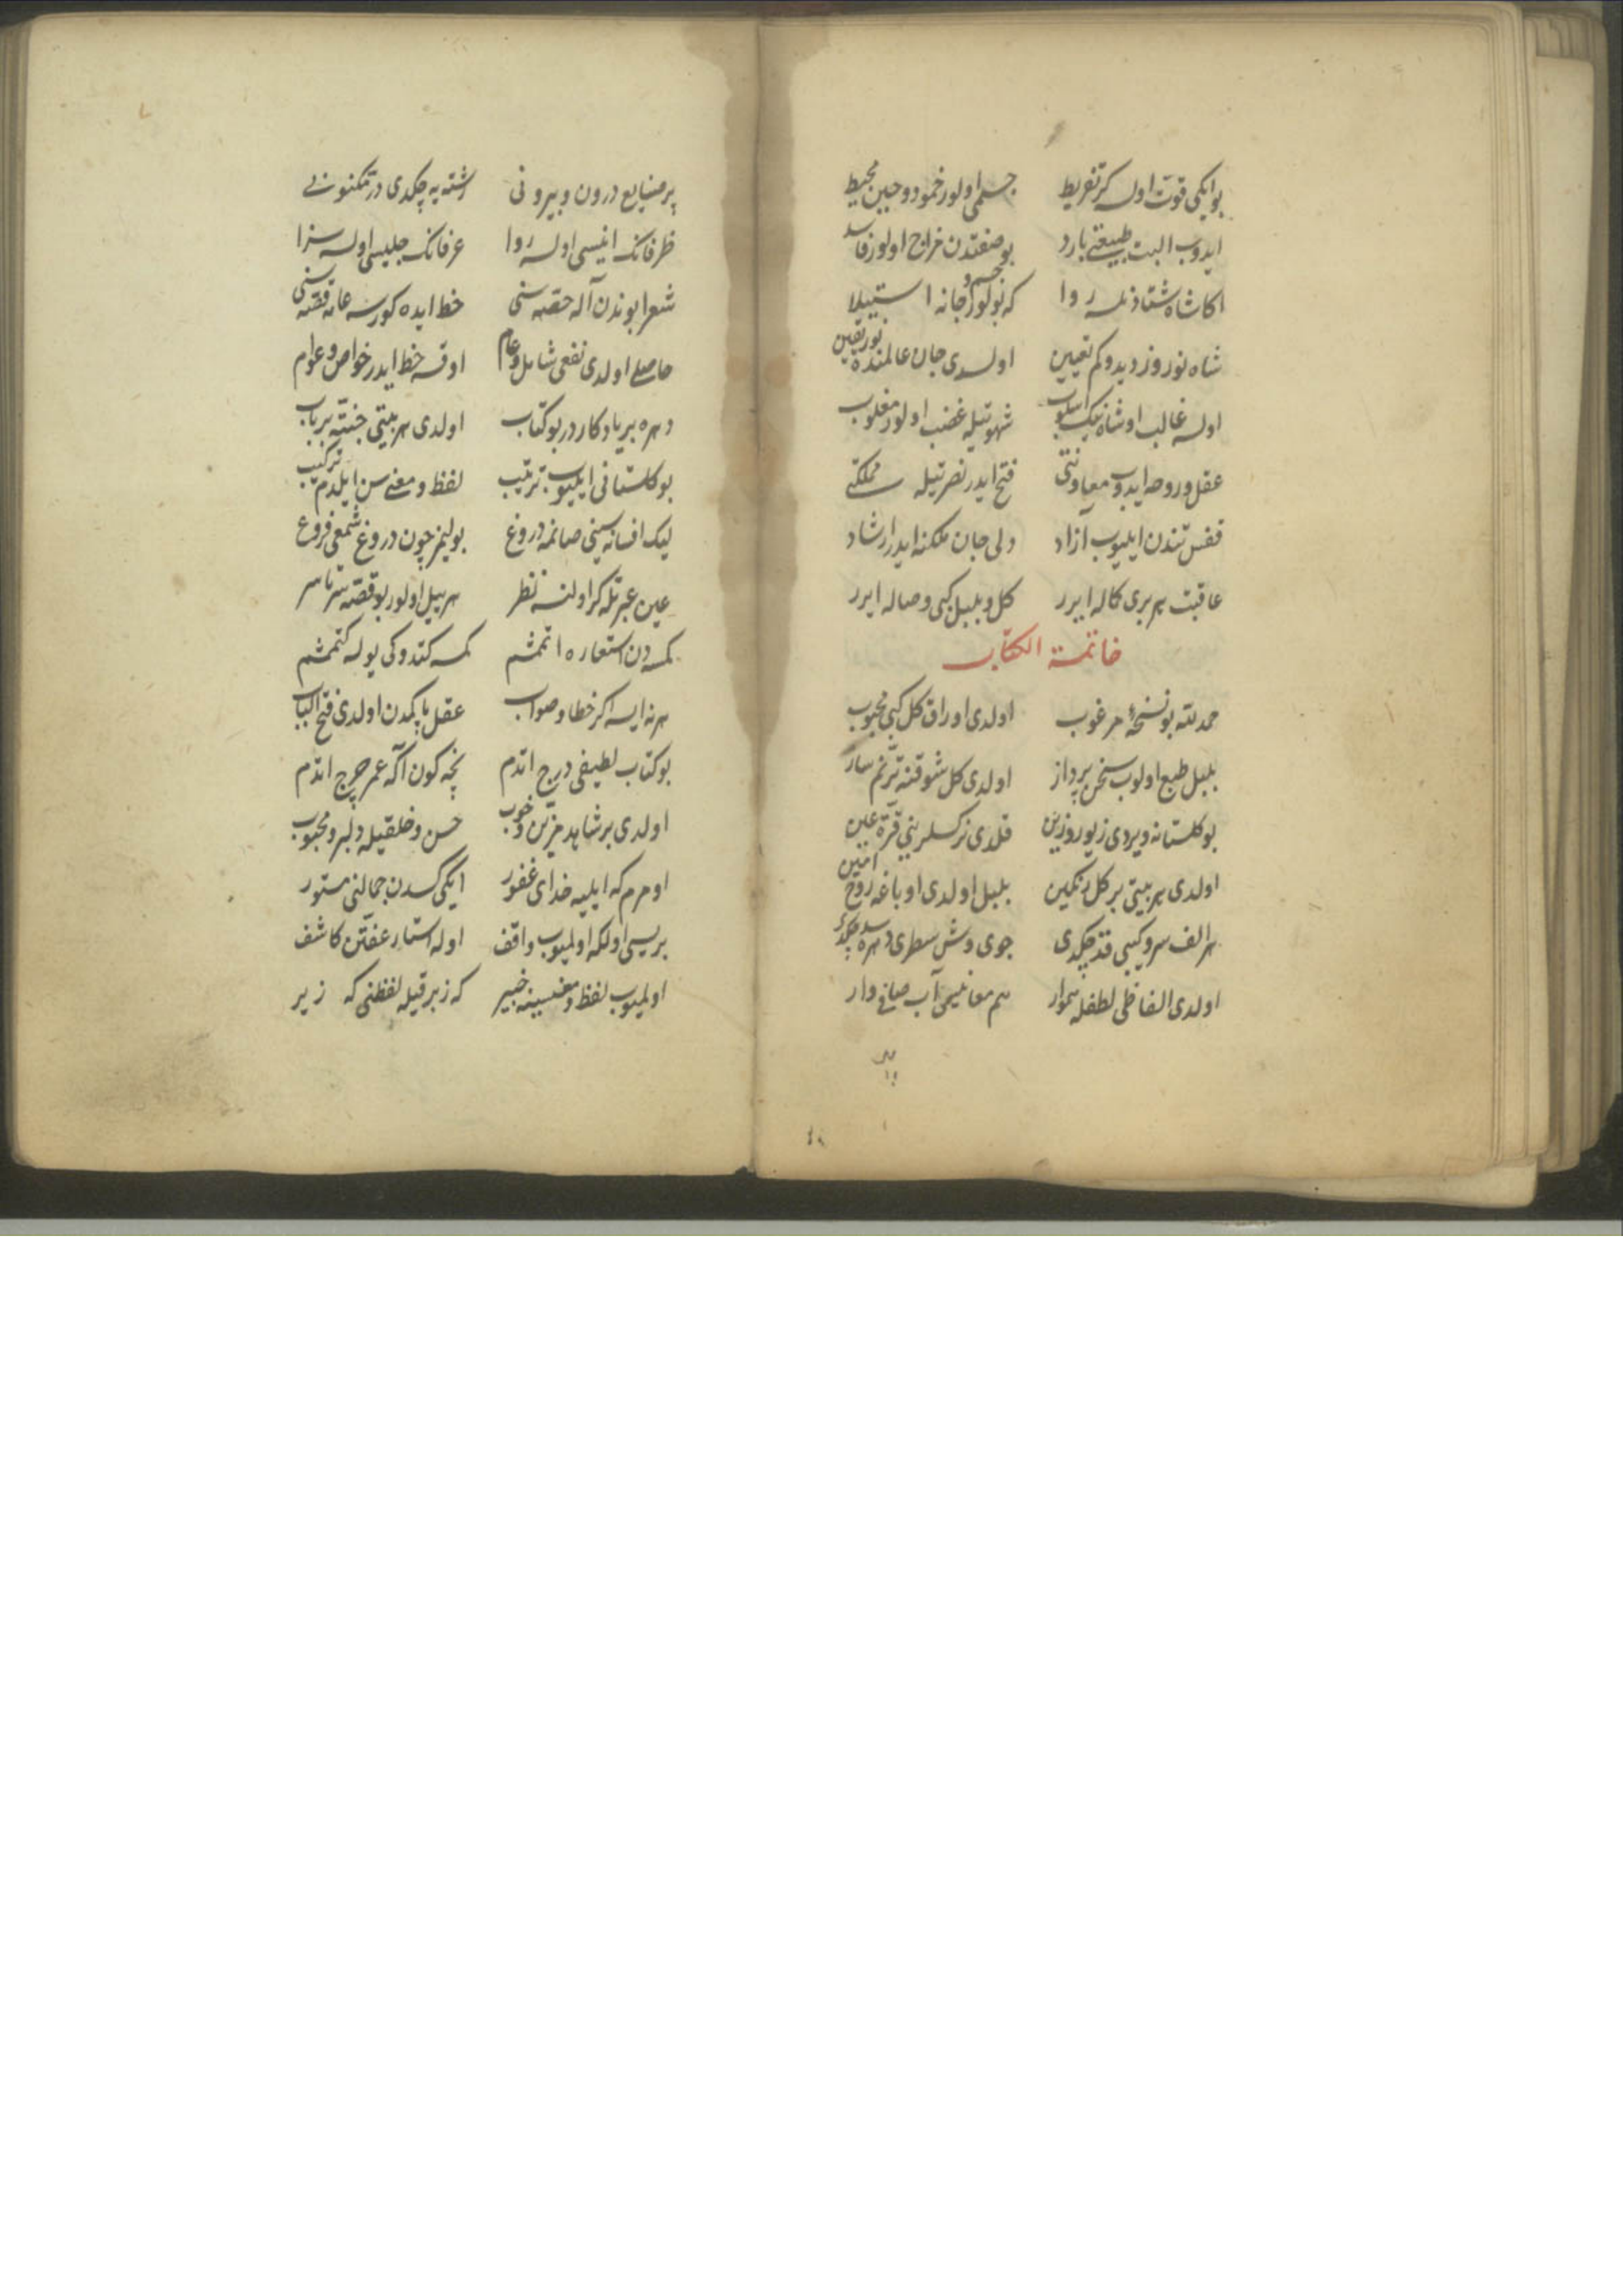 بو ایکی قوت اولسه گر تفریط جسمی اولور خمود و جبن محیط
ایدوب البت طبیعتی بارد بو صفتدن مزاج اولور فاسد
اكا شاه شتا دنلسه روا که بولور جسم و جانه استیلا
شاه نوروز دیدوکم تعیین اولسدی جان عالمنده نور یقین
اولسه غالب او شاه نیک اسلوب شهوتیله غضب اولور مغلوب
عقل و روحه ایدوب معاونتی فتح ایدر نصرتیله مملکتی
قفس تندن ایلیوب آزاد دلی جان ملکنه ایدر ارشاد
عاقبت هر بری کماله ایرر کل و بلبل کبی وصاله ایرر
خاتمة الكتاب
حمد لله بو نسخهٔ مرغوب اولدی اوراق کل کبی محبوب
بلبل طبع اولوب سخن پرداز اولدی کل شوقنه ترنم ساز
بو کلستانه ویردی زیور و زین قلدی نرکسلرینی قرة عین
اولدی هر بیتی بر کل رنکین بلبل اولدی او باغه روح امین
هر الف سرو کبی قد چکدی جوی وش سطری دهره سد چکدی
اولدی الفاظی لطفله هموار هم معانیسی آب صافی وار
پر
پر صنایع درون و بیرونی رشته یه چکدی در مکنونی
ظرفانک انیسی اولسه روا عرفانک جلیسی اولسه سزا
شعرا بوندن آله حصه سنی حظ ایده کورسه عامه قصه سنی
حاصلی اولدی نفعی شامل و عام اوقسه حظ ایدر خواص و عوام
دهره بر یادکاردر بو کتاب اولدی هر بیتی جنته بر باب
بو کلستانی ایلیوب ترتیب لفظ و معنی سن ایلدم ترکیب
لیک افسانه سینی صانمه دروغ بولیمز چون دروغ شمعی فروغ
عین عبرتله کر اولنسه نظر هر بیل اولور بو قصه سرتاسر
کمسه دن استعاره اتممشم کمسه کتدوکی یوله کتممشم
هر نه ایسه اکر خطا و صواب عقل پاکمدن اولدی فتح الباب
بو کتاب لطیفی درج اتدم نچه کون اکه عمر خرج اتدم
اولدی بر شاهد مزین و خوب حسن و خلقیله دلبر و محبوب
اومرم که ایلیه خدای غفور ایکی کسدن جمالنی مستور
بریسی اولکه اولمیوب واقف اوله استار عفتن کاشف
اولمیوب لفظ و معنیسینه خبیر که زبر قیله لفظنی که زیر